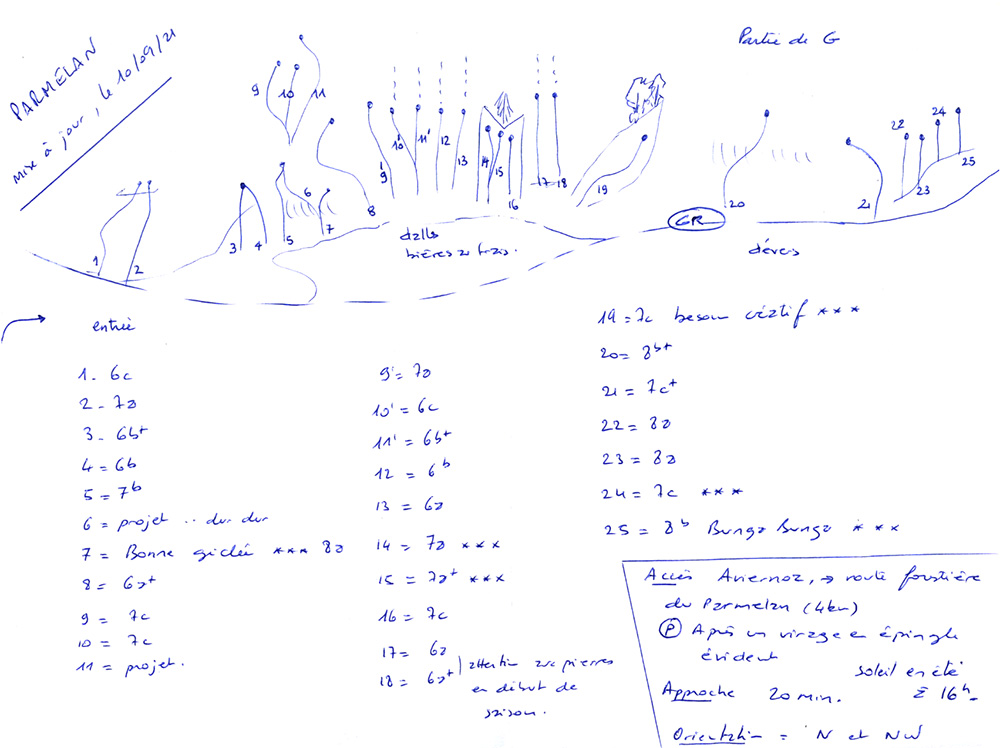 PARMELAN
mise à jour, le 10/09/21
Partie de G
9 10 11
9' 10' 11' 12 13 14 15 16 17 18
19
20 21 22 23 24 25
1 2 3 4 5 6 7 8
GR
dalle
bières au frais.
dévers
entrée
1- 6c
2- 7a
3- 6b+
4 = 6b
5 = 7b
6 = projet .. dur dur
7 = Bonne giclée *** 8a
8 = 6a+
9 = 7c
10 = 7c
11 = projet.
9' = 7a
10' = 6c
11' = 6b+
12 = 6b
13 = 6a
14 = 7a ***
15 = 7a+ ***
16 = 7c
17 = 6a
18 = 6a+ attention aux pierres
en début de
saison.
19 = 7c besoin créatif ***
20 = 8b+
21 = 7c+
22 = 8a
23 = 8a
24 = 7c ***
25 = 8b Bunga Bunga ***
Accès Aviernoz, → route forestière
du Parmelan (4km)
P Après un virage en épingle
évident
soleil en été
Approche 20 min. 16h.
Orientation = N et NW